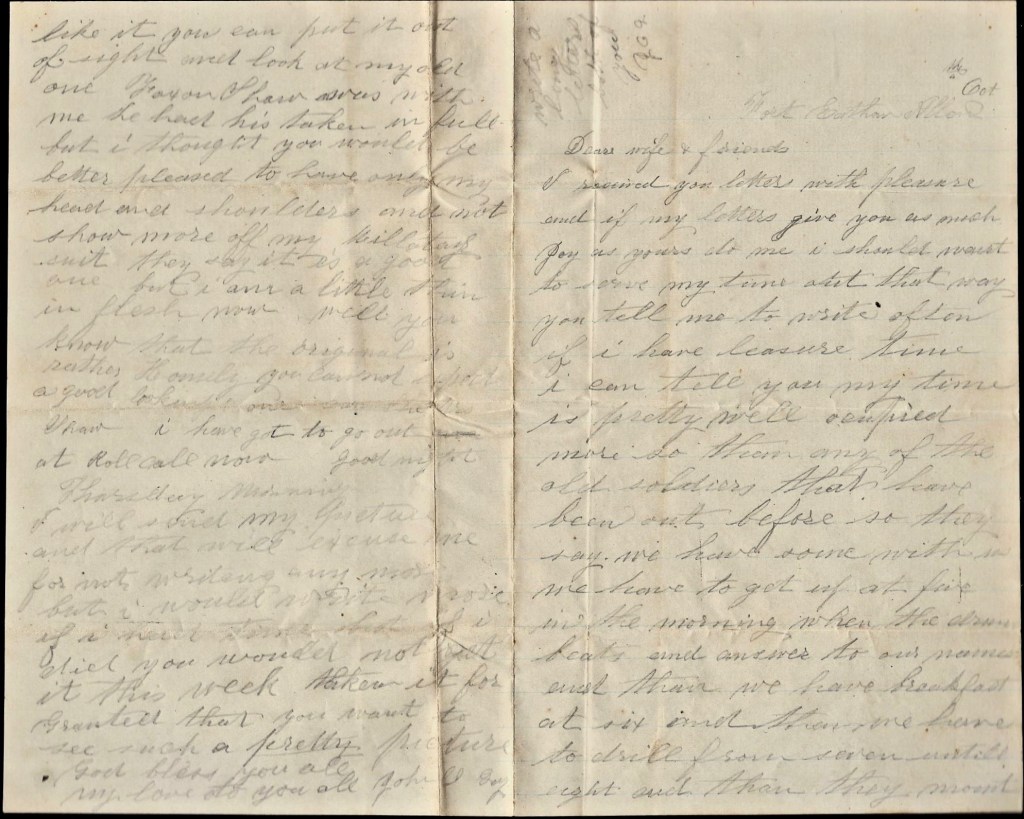 Oct
Fort Ethan Allen
Dear wife & friends
I received you letters with pleasure
and if my letters give you as much
Joy as yours do me i should want
to serve my time out that way
you tell me to write often
if i have leasure time
i can tell you my time
is pretty well ocupied
more so than any of the
old soldiers that have
been out before so they
say. we have some with us
we have to get up at five
in the morning when the drum
beats and answer to our names
and than we have breakfast
at six and than we have
to drill from seven untill
eight and than they mount
like it you can put it out
of sight and look at my old
one Shaw was with
me he had his taken in full
but i thought you would be
better pleased to have only my
head and shoulders and not
show more off my
suit they say it is a good
one but i am a little thin
in flesh now well you
know that the original is
rather homely you cannot
a good
Shaw i have got to go out
at Roll call now good night
Thursday Morning
I will send my picture
and that will excuse me
for not writing any more
but i would write more
if i had time but if i
did you would not get
it this week taken it for
Granted that you want to
see such a pretty picture
God bless you all
my love to you all John
write a
long
letter